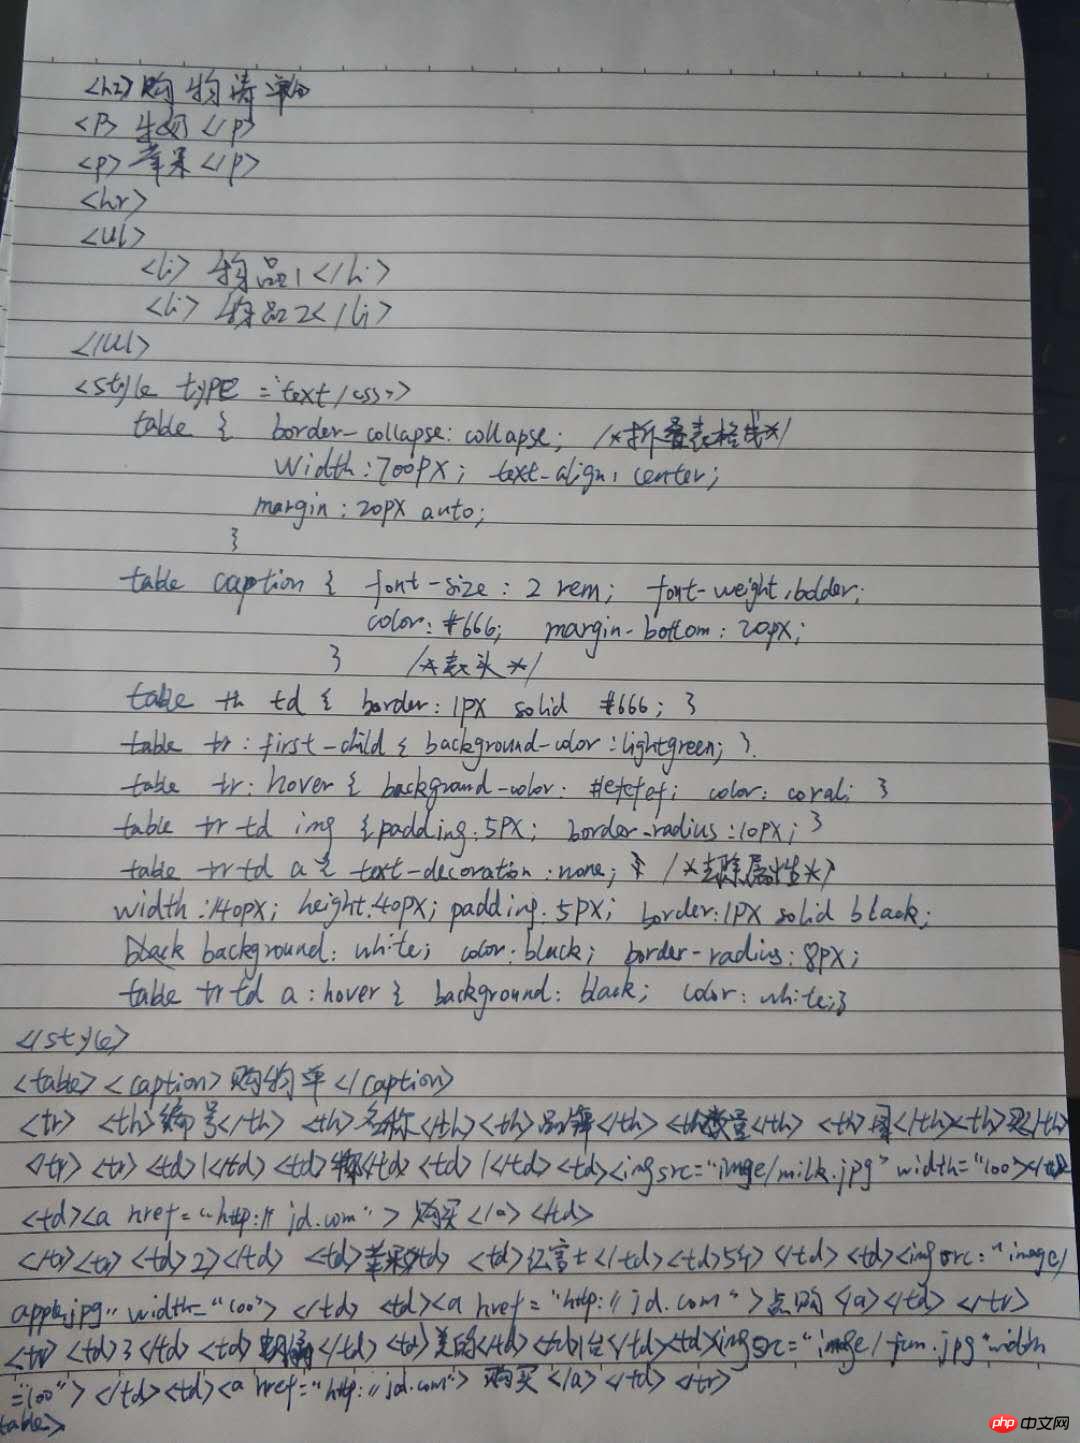 <h2>购物清单
<p> 牛奶 </p>
<p> 苹果 </p>
<hr>
<ul>
<li> 物品1 </li>
<li> 物品2 </li>
</ul>
<style type="text/css">
table { border-collapse: collapse; /*折叠表格线*/
width:700px; text-align: center;
margin: 20px auto;
}
table caption { font-size: 2rem; font-weight:bolder;
color: #666; margin-bottom: 20px;
} /*表头*/
table th td { border: 1px solid #666; }
table tr:first-child { background-color:lightgreen; }
table tr:hover { background-color: #efefef; color: coral; }
table tr td img {padding:5px; border-radius:10px; }
table tr td a { text-decoration:none; /*去除属性*/
width:140px; height:40px; padding:5px; border:1px solid black;
background: white; color:black; border-radius:8px;
table tr td a:hover { background: black; color: white;}
</style>
<table> <caption> 购物单 </caption>
<tr> <th>编号</th> <th>名称</th><th>品牌</th> <th>数量</th> <th>图</th><th>买</th>
</tr> <tr> <td>1</td> <td> </td> <td>1</td> <td><img src="image/milk.jpg" width="100"></td>
<td><a href="http://jd.com"> 购买 </a> </td>
</tr><tr> <td>2</td> <td>苹果</td> <td>红富士</td><td>5斤</td> <td><img src="image/
apple.jpg" width="100"> </td> <td><a href="http://jd.com">点购</a></td> </tr>
<tr> <td>3</td> <td> </td> <td>美的</td> <td>1台</td><td><img src="image/fun.jpg" width
="100"> </td><td><a href="http://jd.com"> 购买 </a> </td> </tr>
table>
php 中文网